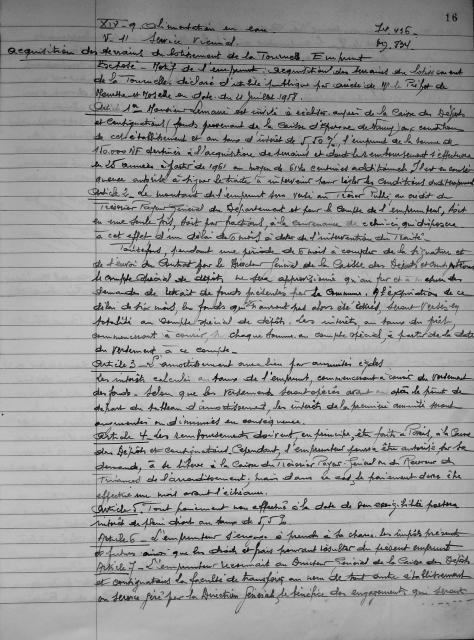 16
XIV - 9 Alimentation en eau.
V. 11 Service Vicinal.
Acquisition des terrains du lotissement de la Tournelle. Emprunt
Exposé - Motif de l'emprunt. acquisition des terrains du lotissement
de la Tournelle, déclaré d'utilité publique par arrêté de M. le Préfet de
Meurthe et Moselle en date du Juillet 1958.
Art. 1er Monsieur le Maire est invité à réaliser auprès de la Caisse des Dépôts
et Consignations / fonds provenant de la Caisse d'Epargne de Nancy / aux conditions
de cet établissement et au taux d'intérêt de 5,50%, l'emprunt de la somme de
110.000 NF destinés à l'acquisition de terrains et dont le remboursement s'effectuera
en années à partir de 1961 au moyen de centimes additionnels. Il est en conséquence
autorisé à signer le traité à intervenir pour régler les conditions de l'emprunt
Article 2. Le montant de l'emprunt sera versé au Trésor Public au crédit du
Trésorier Payeur Général du Département et pour le compte de l'emprunteur, soit
en une seule fois, soit par fractions, à la convenance de celui-ci qui disposera
à cet effet d'un délai de 6 mois à dater de l'intervention du Traité.
Toutefois, pendant une période de 6 mois à compter de la signature et
de l'envoi du Contrat par le Directeur Général de la Caisse des Dépôts et Consignations
le compte spécial de dépôt, ne sera approvisionné qu'au fur et à mesure des
demandes de retrait de fonds présentées par la Commune. A l'expiration de ce
délai de six mois, les fonds qui n'auront pas alors été retirés, seront versés en
totalité au compte spécial de dépôt. Les intérêts, au taux du prêt
commenceront à courir, chaque somme au compte spécial à partir de la date
du versement à ce compte.
Article 3 - L'amortissement aura lieu par annuités égales
Les intérêts calculés au taux de l'emprunt, commenceront à courir du versement
des fonds. Selon que les versements seront opérés avant ou après le point de
départ du tableau d'amortissement, les intérêts de la première annuité seront
augmentés ou diminués en conséquence.
Article 4. Les remboursements doivent, en principe, être faits à Paris, à la Caisse
des Dépôts et Consignations. Cependant, l'emprunteur pourra être autorisé sur sa
demande, à se libérer à la Caisse du Trésorier Payeur Général ou du Receveur des
Finances de l'arrondissement, mais dans ce cas, le paiement devra être
effectué un mois avant l'échéance.
Article 5. Tout paiement non effectué à la date de son exigibilité portera
intérêt de plein droit au taux de 5,50%.
Article 6 - L'emprunteur s'engage à prendre à sa charge les impôts présents
et futurs ainsi que les droits et frais pouvant résulter du présent emprunt
Article 7 - L'emprunteur reconnaît au Directeur Général de la Caisse des Dépôts
et Consignations la faculté de transférer au nom de tout autre établissement
ou service géré par la Direction Générale, le bénéfice des engagements qui seront